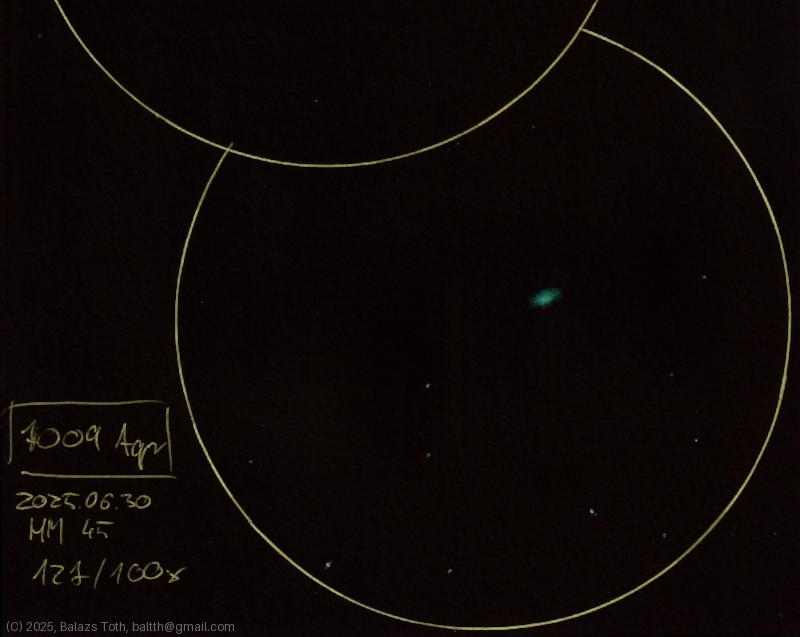 7009 Aqr
2025.06.30
MM 45
127/100x
(C) 2025, Balazs Toth, baltth@gmail.com